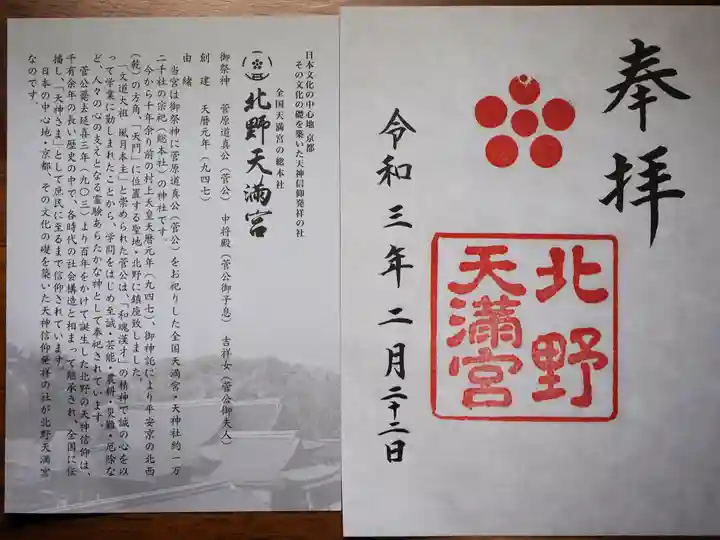 奉拝
北野
天満宮
令和三年二月二十二日
日本文化の中心地 京都
その文化の礎を築いた天神信仰発祥の社
全国天満宮の総本社
北野天満宮
御祭神 菅原道真公(菅公) 中将殿(菅公御子息) 吉祥女(菅公御夫人)
創建 天暦元年(九四七)
由緒
当宮は御祭神に菅原道真公(菅公)をお祀りした全国天満宮・天神社約一万
二千社の宗祀(総本社)の神社です。
今から千年余り前の村上天皇天暦元年(九四七)、御神託により平安京の北西
(乾)の方角「天門」に位置する聖地・北野に鎮座致しました。
「文道大祖 風月本主」と崇められた菅公は、「和魂漢才」の精神で誠の心を以
って学業に勤しまれたことから、学問をはじめ至誠・芸能・農耕・災難・厄除な
ど、人々の心の支えとなる霊験あらたかな神として奉祀されています。
菅公薨去延喜三年(九〇三)より百年をかけて誕生した北野の天神信仰は、
千有余年の長い歴史の中で、各時代の社会構造と相まって継承され、全国に伝
播し、「天神さま」として庶民に至るまで信仰されています。
日本の中心地・京都、その文化の礎を築いた天神信仰発祥の社が北野天満宮
なのです。